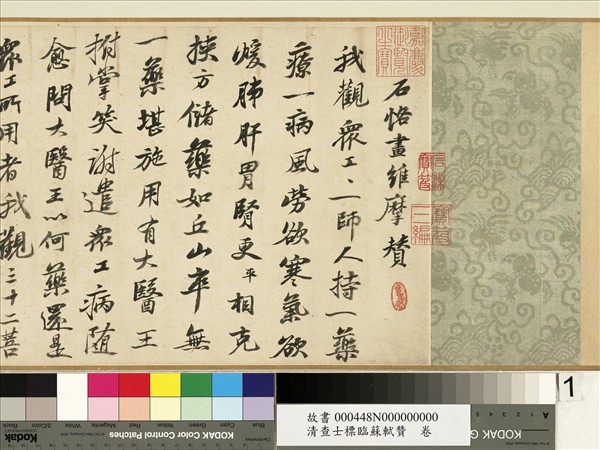 石恪畫維摩贊
我觀衆工〻一師人持一藥
療一病風勞欲寒氣欲
煖肺肝胃腎更平相克
挾方儲藥如丘山卒無
一藥堪施用有大醫王
拊掌笑謝遣衆工病随
愈問大醫王以何藥還是
衆工所用者我觀三十二菩
嘉慶御覽之寶
石渠寶笈
寶笈三編
故書 000448N000000000
清查士標臨蘇軾贊 卷
Kodak Color Control Patches
Blue
Cyan
Green
Yellow
Red
Magenta
White
3/Color
Black
Kodak
A
1